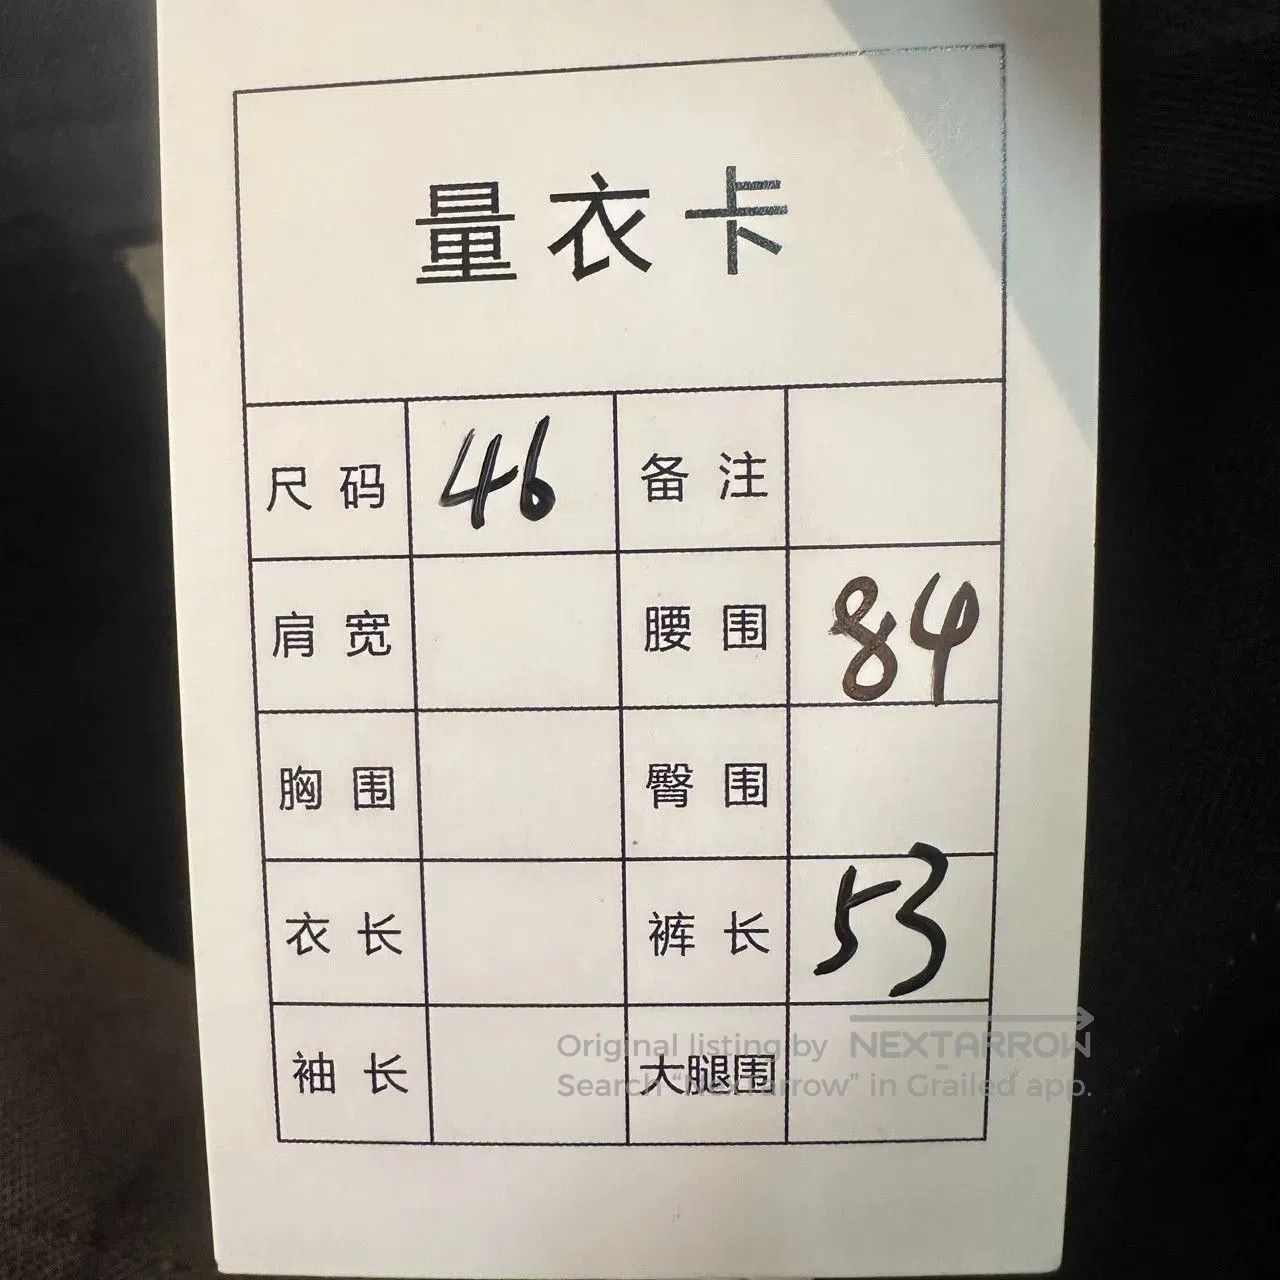 量衣卡
尺码 46 备注
肩宽 腰围 84
胸围 臀围
衣长 裤长 53
袖长 大腿围
Original listing by NEXTARROW
Search “NexTarrow” in Grailed app.